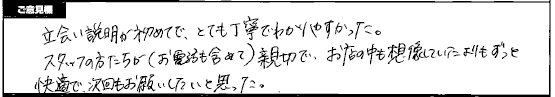 ご意見欄
立会い説明が初めてで、とても丁寧でわかりやすかった。
スタッフの方たちが(お電話も含めて)親切で、お店の中も想像していたよりもずっと
快適で、次回もお願いしたいと思った。